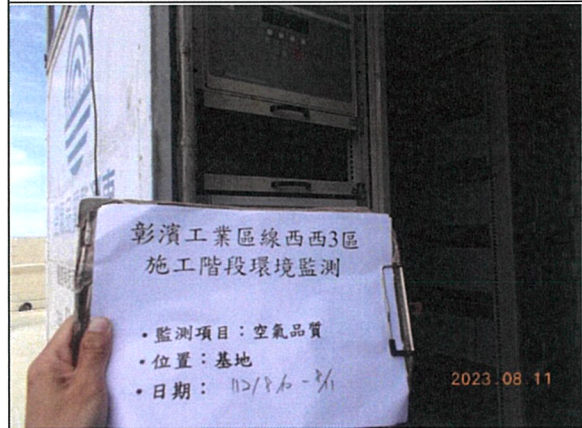 彰濱工業區線西西3區
施工階段環境監測
・監測項目：空氣品質
・位置：基地
・日期： 112/8/10-8/11
2023.08.11